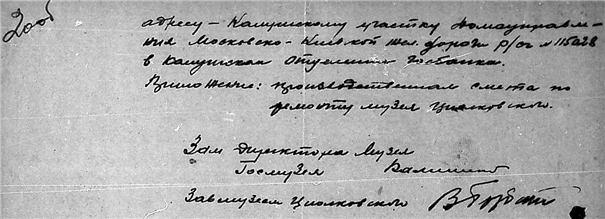 адресу – Калужскому участку Домоуправле-
ния Московско-Киевской жел. дороги р/сч № 115028
в Калужском Отделении Госбанка.
Приложение: производственная смета по
ремонту музея Циолковского.
Зам директора Музея
Госмузея
Завмузеем Циолковского